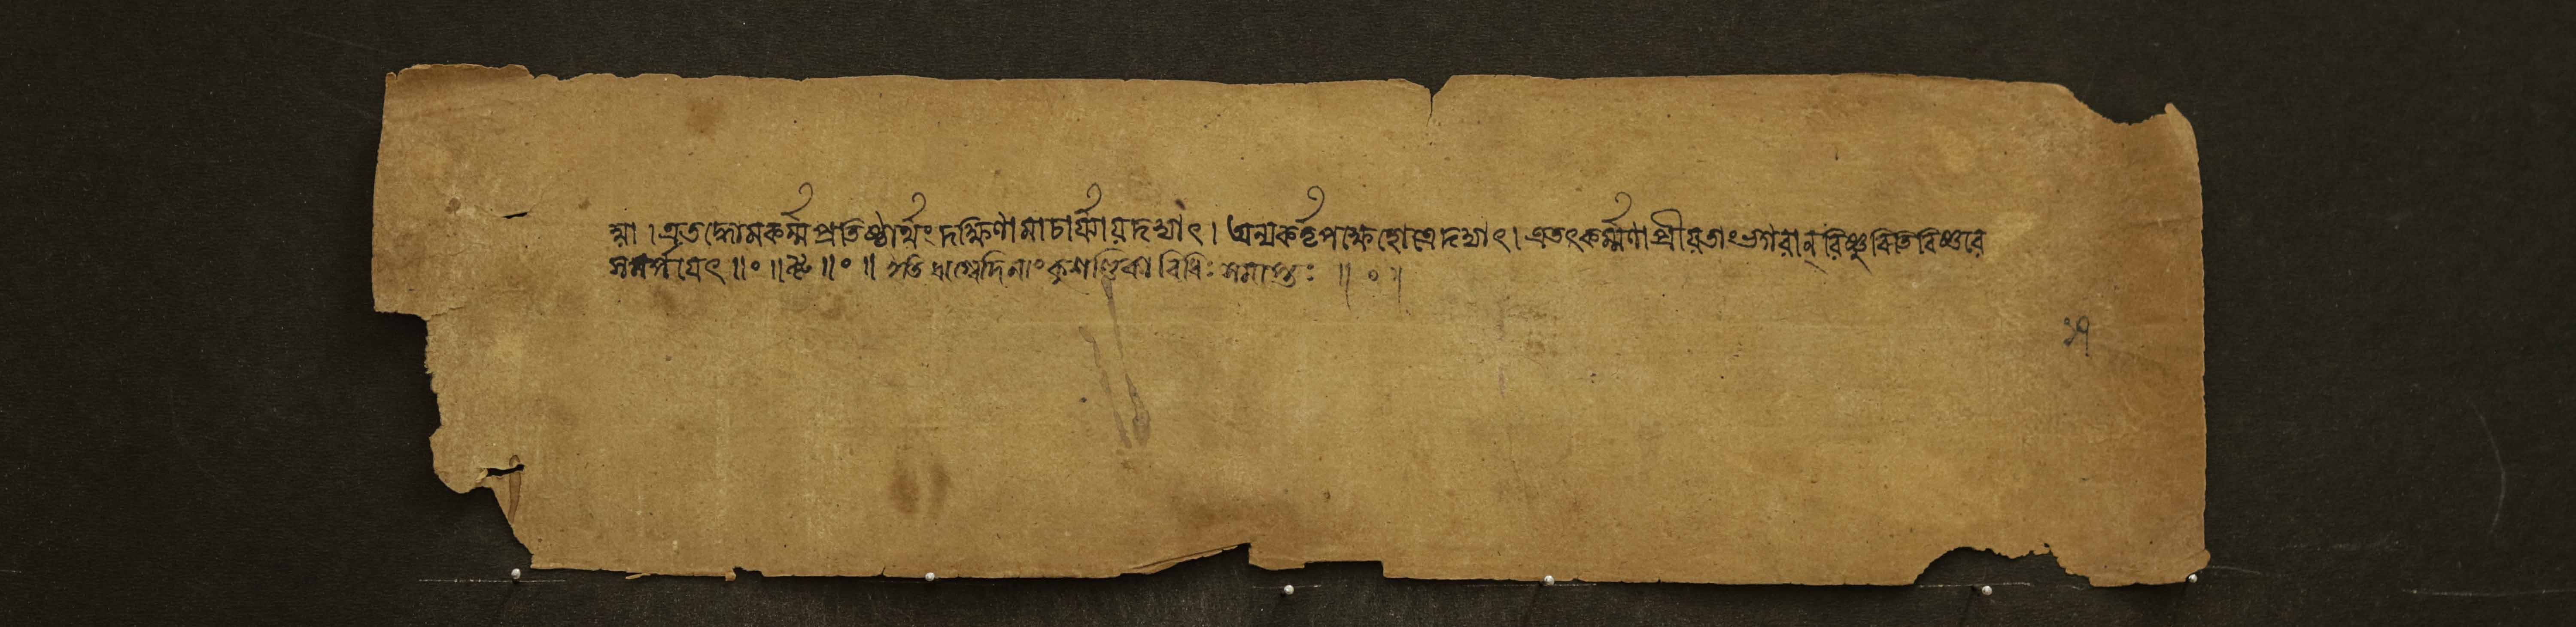 ম্না । এতদ্ধোমকর্ম্মপ্রতিষ্ঠার্থং দক্ষিণামাচার্য্যায়দদ্যাৎ । অন্যকর্তৃপক্ষেহোত্রেদদ্যাৎ । এতৎকর্ম্মণাপ্রীয়তাংভগবান্ বিষ্ণুরিতিবিষ্ণবে
সমর্পযেৎ ॥ ० ॥ ॥ ० ॥ ইতি ঋগ্বেদিনাং কুশণ্ডিকা বিধিঃ সমাপ্তঃ ॥ ० ॥